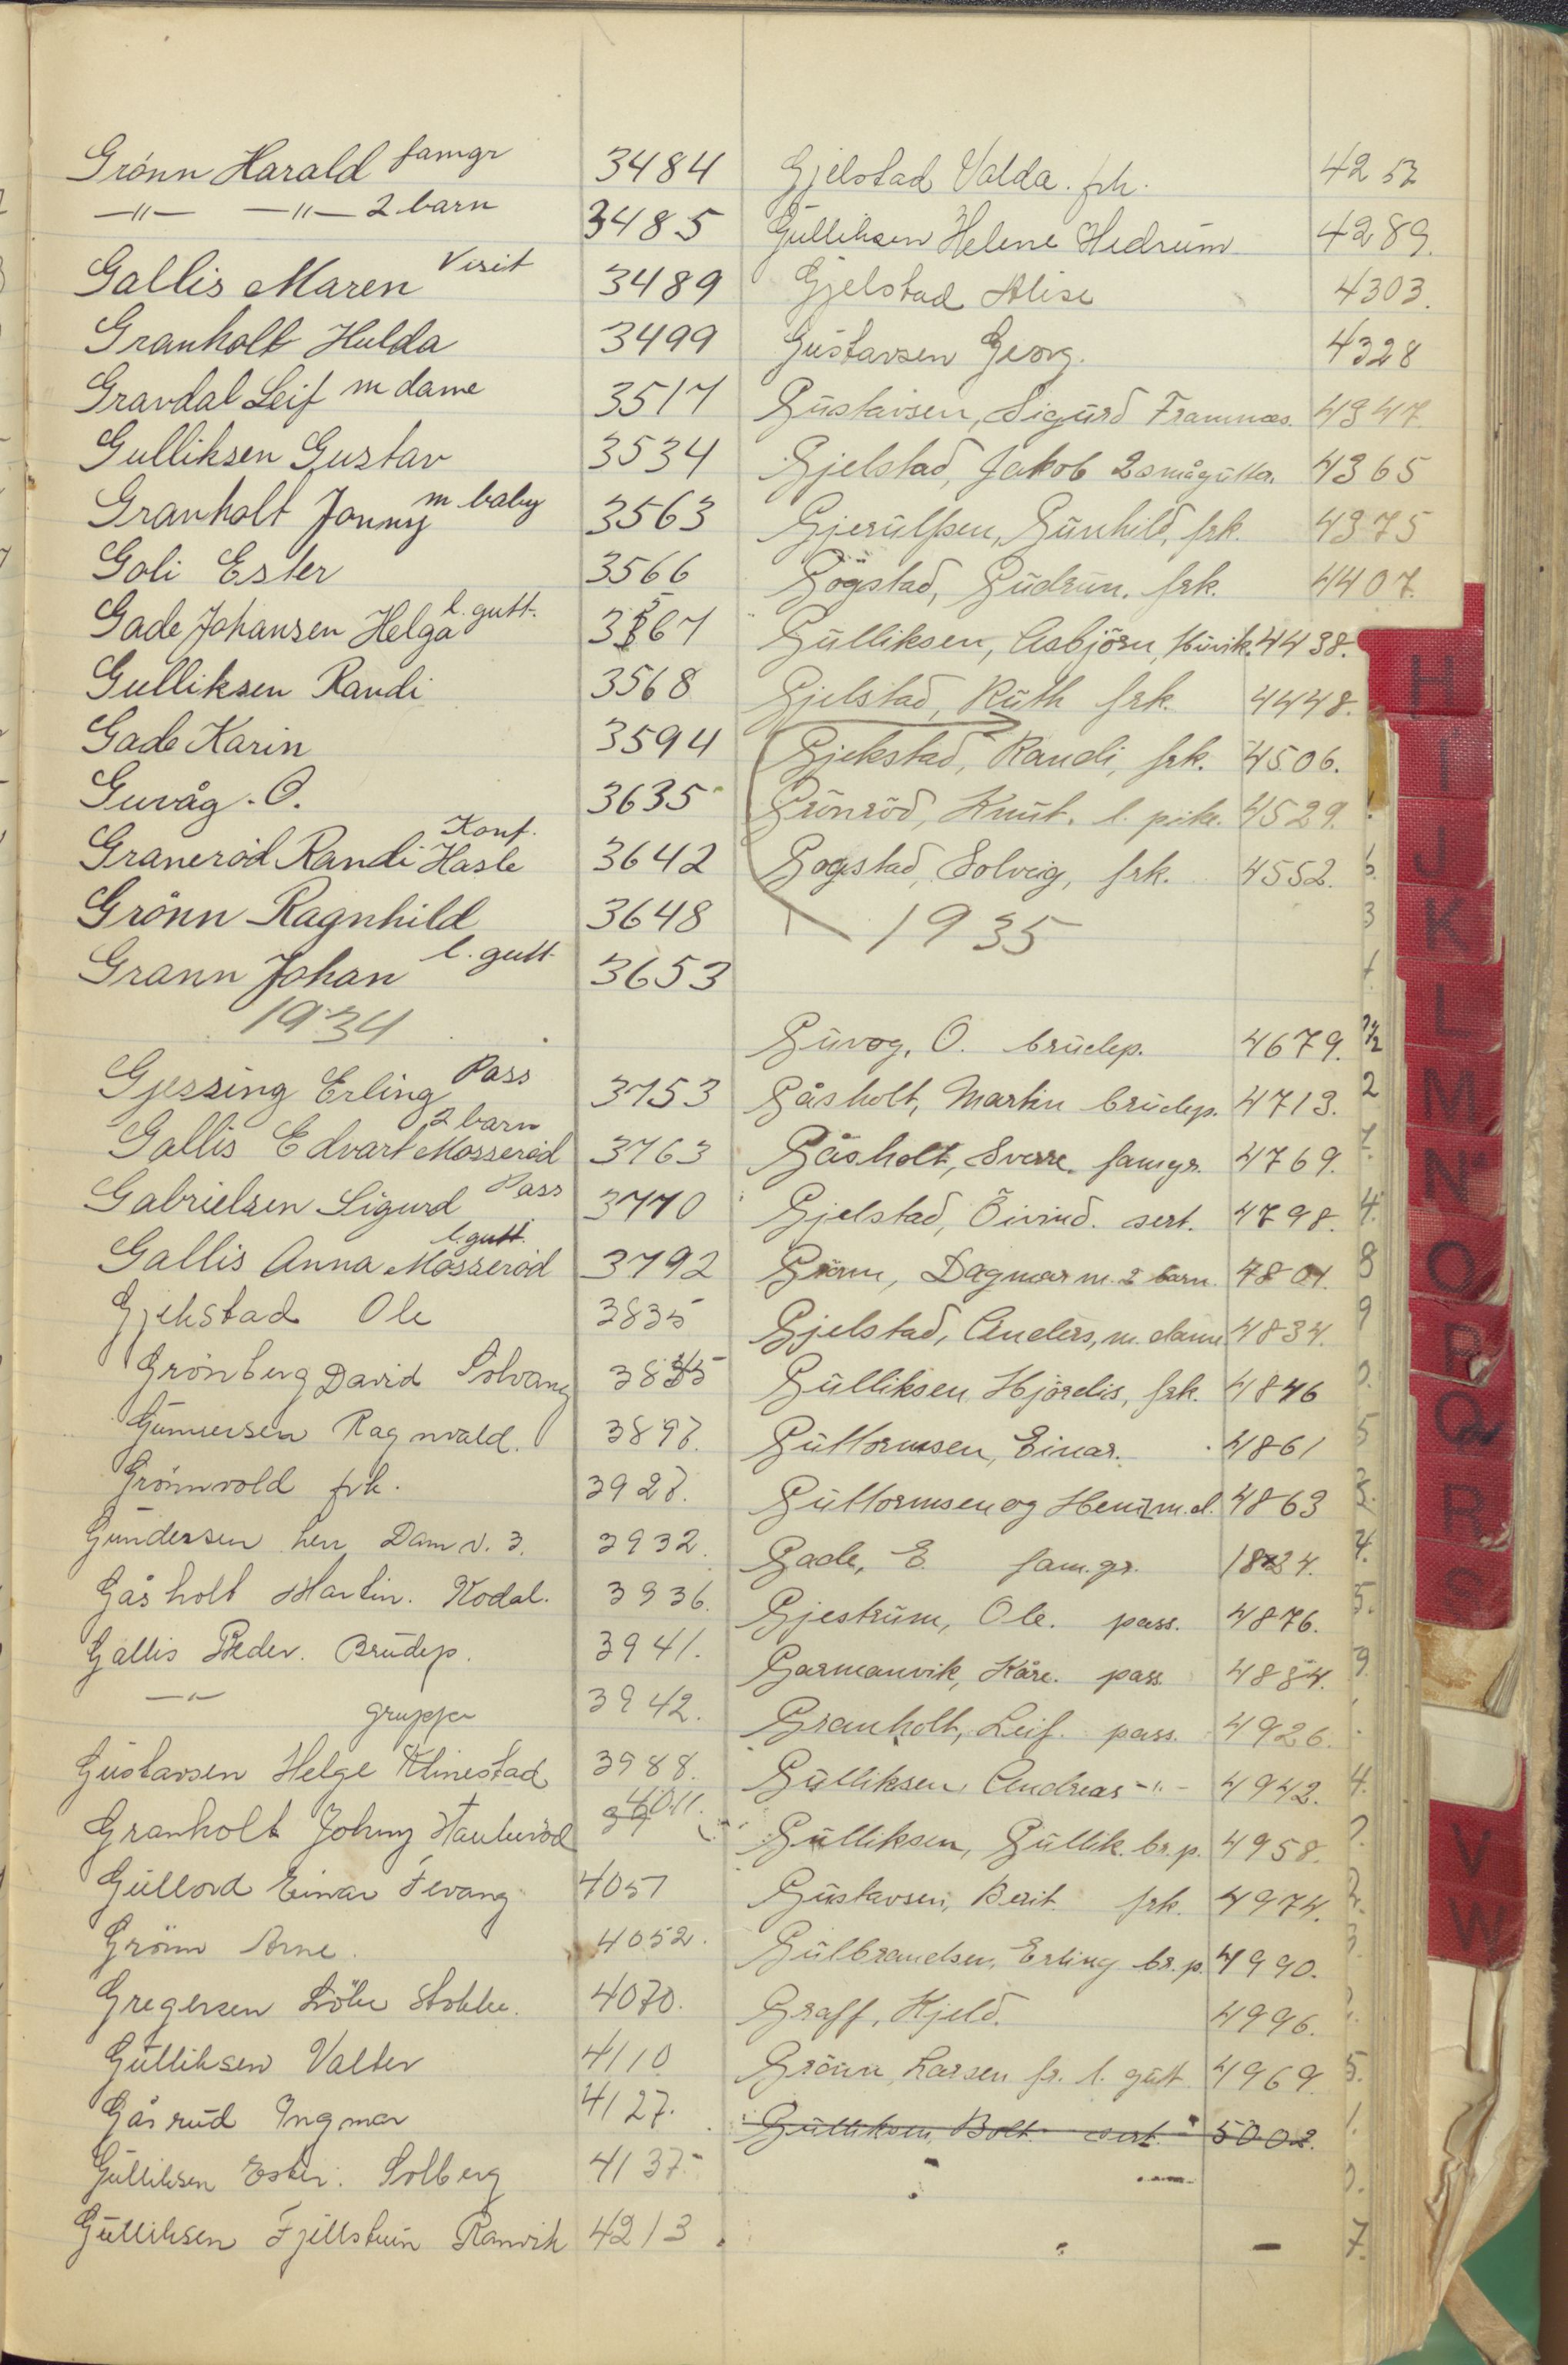 Grönn Harald famgr 3484
—"— —"— 2 barn 3485
Gallis Maren Visit 3489
Granholt Hulda 3499
Gravdal Leif m dame 3517
Gulliksen Gustav 3534
Granholt Jonny m baby 3563
Goli Ester 3566
Gade Johansen Helga l. gutt. 3567
Gulliksen Randi 3568
Gade Karin 3594
Guvåg. O. 3635
Graneröd Randi Hasle Konf. 3642
Grönn Ragnhild 3648
Grann Johan l. gutt 3653
1934
Gjessing Erling Pass 3753
Gallis Edvart Mosseröd 2 barn 3763
Gabrielsen Sigurd Pass 3770
Gallis Anna Mosseröd l. gutt. 3792
Gjekstad Ole 3835
Grönberg David Solvang 3845
Gunnersen Ragnvald. 3897.
Grönnvold frk. 3927.
Gundersen herr Dam v. 3. 3932.
Gåsholt Martin. Kodal. 3936.
Gallis Peder. Brudep. 3941.
—"— gruppe 3942.
Gustavsen Helge Klinestad 3988.
Granholt Johny Haukeröd 4011.
Gullord Einar Fevang 4051
Grönn Arne. 4052.
Gregersen Stokke. 4070.
Gulliksen Valter 4110
Gåsrud Ingmar 4127.
Gulliksen Ester. Solberg 4137
Gulliksen Ranvik 4213
Gjelstad Valda. frk. 4257
Gulliksen Helene Hedrum 4289.
Gjelstad Alise 4303.
Gustavsen Georg. 4328
Gustavsen, Sigurd Framnæs. 4347.
Gjelstad, Jakob 2 smågutter. 4365
Gjerulfsen, Gunhild, frk. 4375
Gögstad, Gudrun. frk. 4407.
Gulliksen, Asbjörn, Huvik. 4438.
Gjelstad, Ruth frk. 4448.
Gjekstad, Randi, frk. 4506.
Grönröd, Knut. l. pike. 4529.
Gogstad, Solveig, frk. 4552.
1935
Guvog, O. brudep. 4679.
Gåsholt, Martin brudep. 4713.
Gåsholt, Sverre. famgr. 4769.
Gjelstad, Öivind. sert. 4798.
Grönn, Dagmar m. 2 barn. 4801.
Gjelstad, Anders, m. dame 4834.
Gulliksen Hjördis, frk. 4846
Guttormsen, Einar. 4861
Guttormsen og m.d. 4863
Gade, E. fam.gr.
Gjestrum, Ole. pass. 4876.
Garmanvik, Kåre. pass. 4884.
Granholt, Leif. pass. 4926.
Gulliksen Andreas -"- 4942.
Gulliksen, Gullik. br.p. 4958.
Gustavsen, Berit frk. 4974.
Gulbrandsen, Erling br.p. 4990.
Graff, Kjeld. 4996.
Grönn, Larsen fr. l. gutt 4969.
Gulliksen, Bolt. sert. 5002.
H
I
J
K
L
M
N
O
P
Q
R
S
V
W